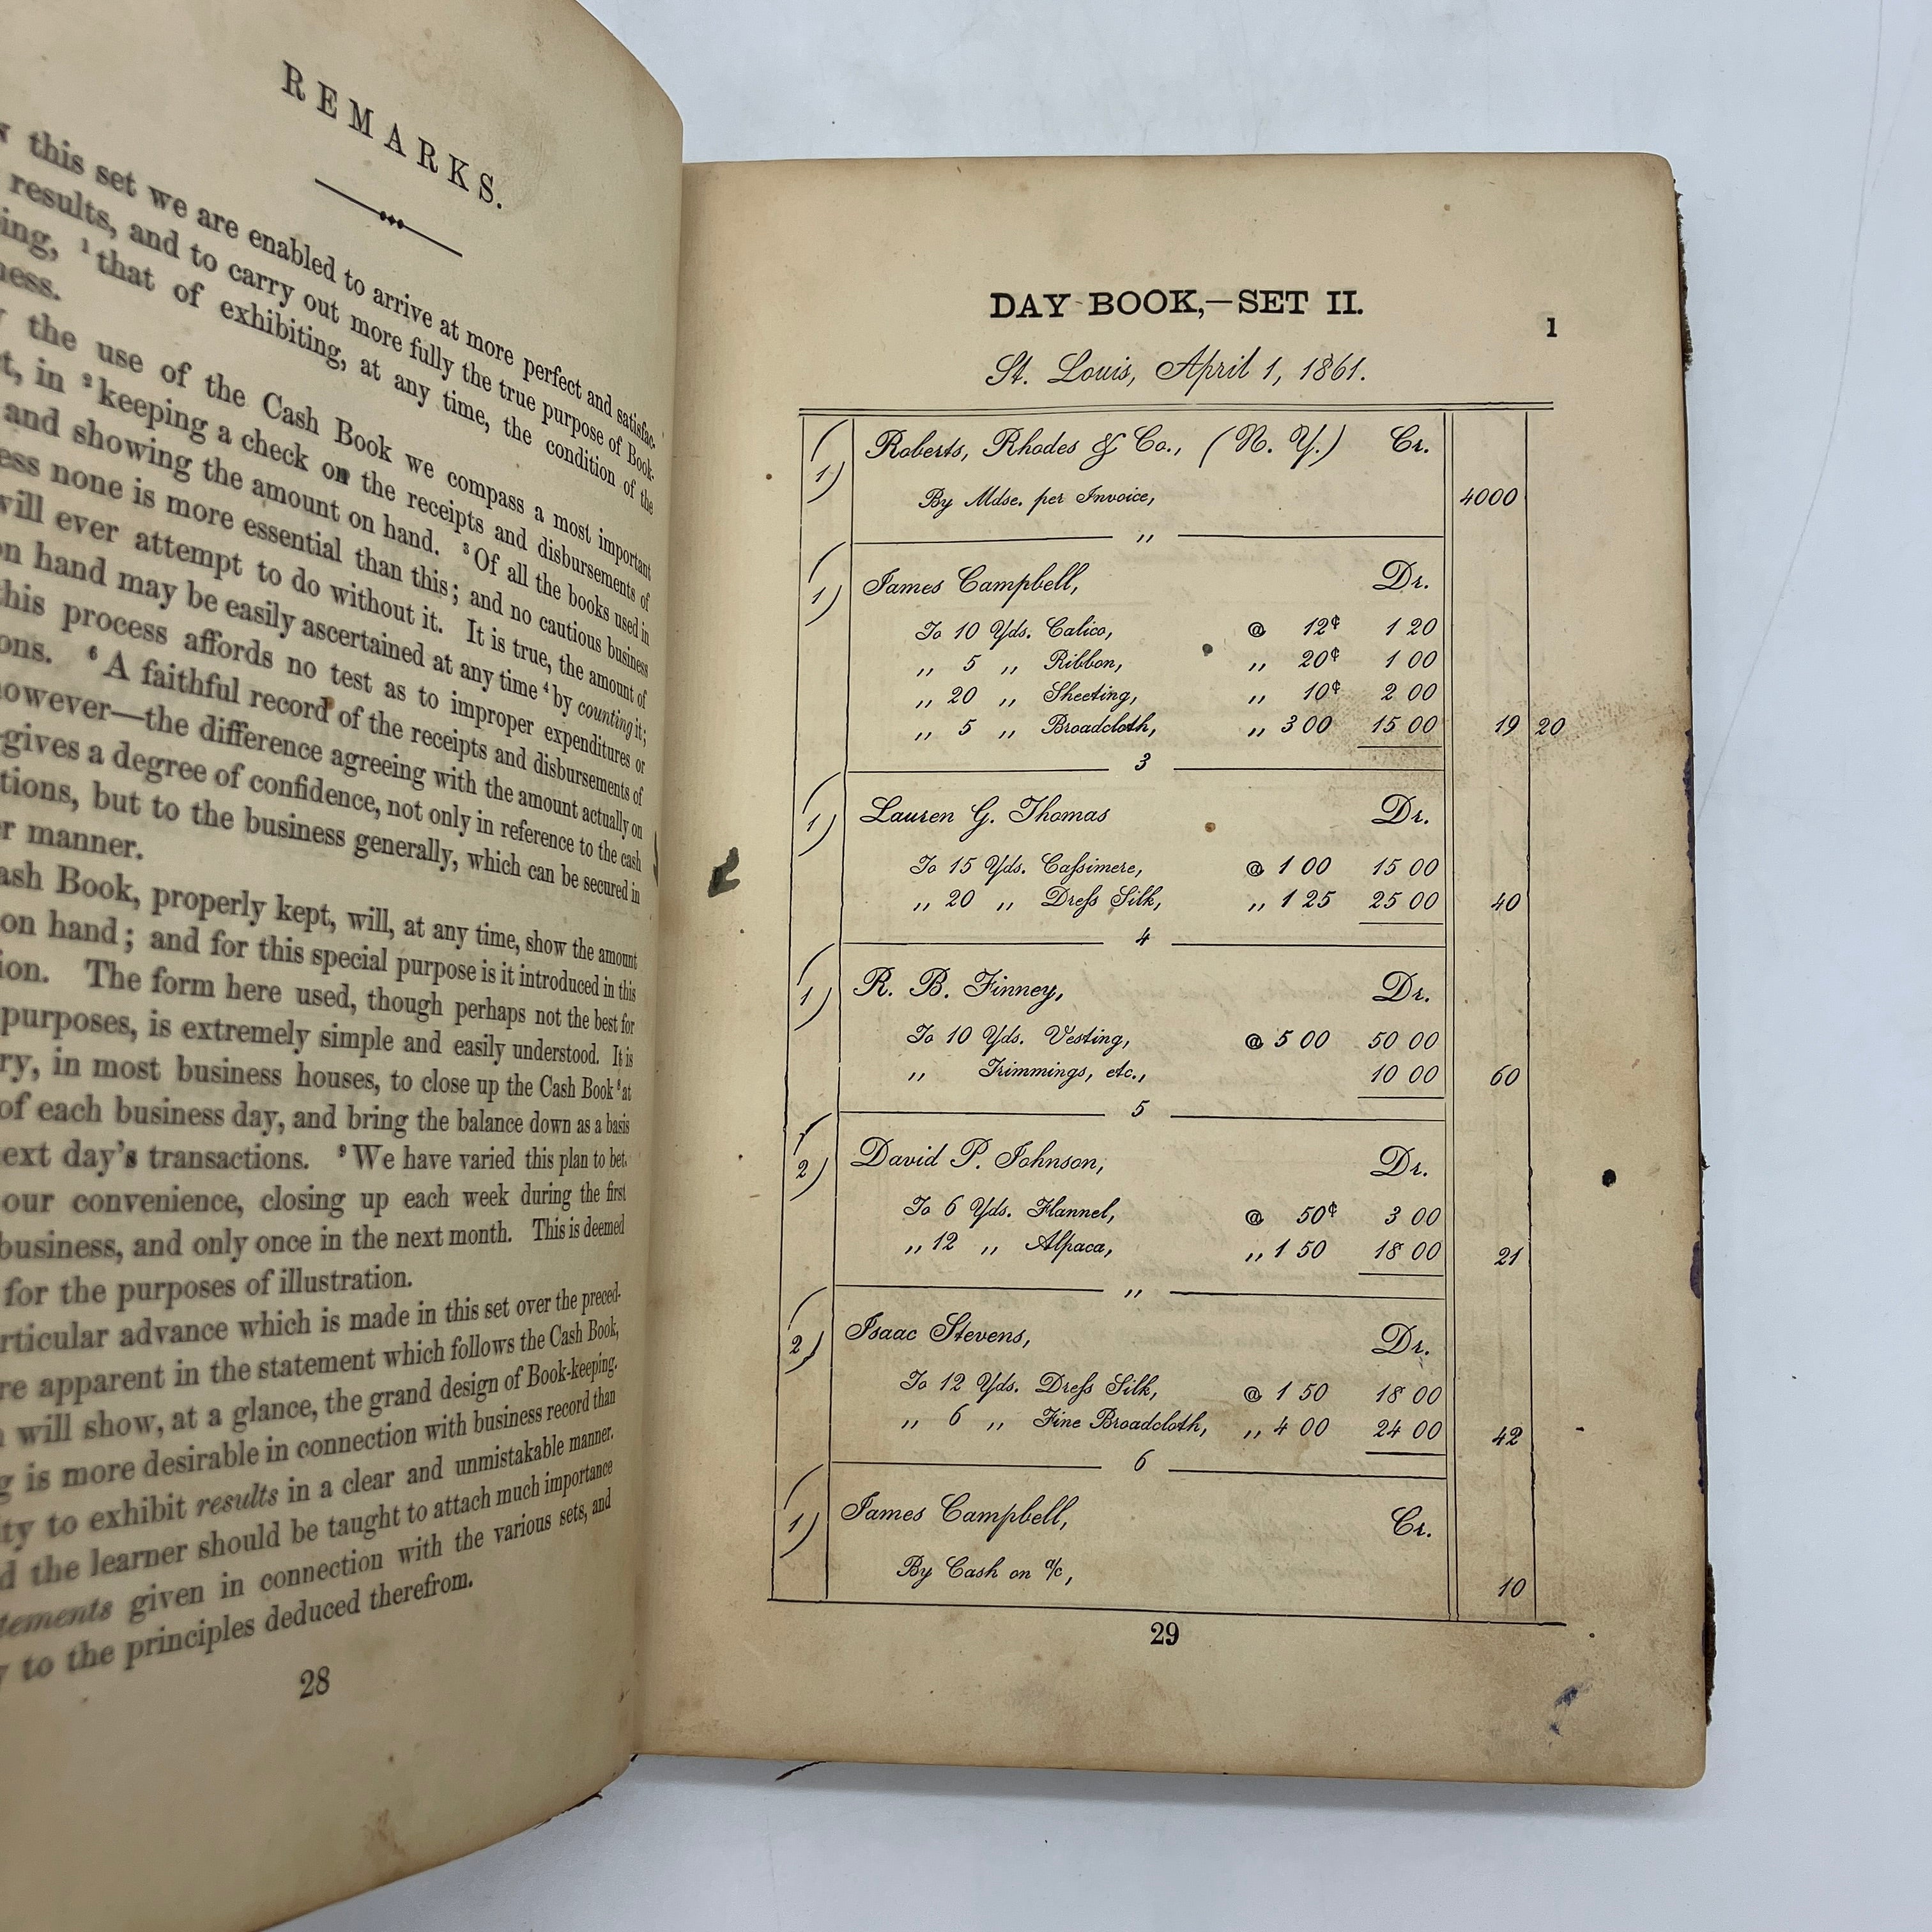 REMARKS.
this set we are enabled to arrive at more perfect and satisfac-
results, and to carry out more fully the true purpose of Book-
ing, ¹that of exhibiting, at any time, the condition of the
ness.
the use of the Cash Book we compass a most important
t, in ²keeping a check on the receipts and disbursements of
and showing the amount on hand. ³Of all the books used in
ess none is more essential than this; and no cautious business
will ever attempt to do without it. It is true, the amount of
on hand may be easily ascertained at any time ⁴by counting it;
this process affords no test as to improper expenditures or
ons. ⁶A faithful record of the receipts and disbursements of
however—the difference agreeing with the amount actually on
gives a degree of confidence, not only in reference to the cash
tions, but to the business generally, which can be secured in
er manner.
ash Book, properly kept, will, at any time, show the amount
on hand; and for this special purpose is it introduced in this
ion. The form here used, though perhaps not the best for
purposes, is extremely simple and easily understood. It is
ry, in most business houses, to close up the Cash Book ⁸at
of each business day, and bring the balance down as a basis
ext day's transactions. ⁹We have varied this plan to bet-
our convenience, closing up each week during the first
business, and only once in the next month. This is deemed
for the purposes of illustration.
rticular advance which is made in this set over the preced-
re apparent in the statement which follows the Cash Book,
will show, at a glance, the grand design of Book-keeping.
g is more desirable in connection with business record than
ty to exhibit results in a clear and unmistakable manner.
d the learner should be taught to attach much importance
tements given in connection with the various sets, and
to the principles deduced therefrom.
28
DAY BOOK,—SET II.
1
St. Louis, April 1, 1861.
1) Roberts, Rhodes & Co., (N. Y.) Cr.
By Mdse. per Invoice, 4000
"
1) James Campbell, Dr.
To 10 Yds. Calico, @ 12¢ 1 20
" 5 " Ribbon, " 20¢ 1 00
" 20 " Sheeting, " 10¢ 2 00
" 5 " Broadcloth, " 3 00 15 00 19 20
3
1) Lauren G. Thomas Dr.
To 15 Yds. Caſsimere, @ 1 00 15 00
" 20 " Dreſs Silk, " 1 25 25 00 40
4
1) R. B. Finney, Dr.
To 10 Yds. Vesting, @ 5 00 50 00
" Trimmings, etc., 10 00 60
5
2) David P. Johnson, Dr.
To 6 Yds. Flannel, @ 50¢ 3 00
" 12 " Alpaca, " 1 50 18 00 21
"
2) Isaac Stevens, Dr.
To 12 Yds. Dreſs Silk, @ 1 50 18 00
" 6 " Fine Broadcloth, " 4 00 24 00 42
6
1) James Campbell, Cr.
By Cash on a/c, 10
29